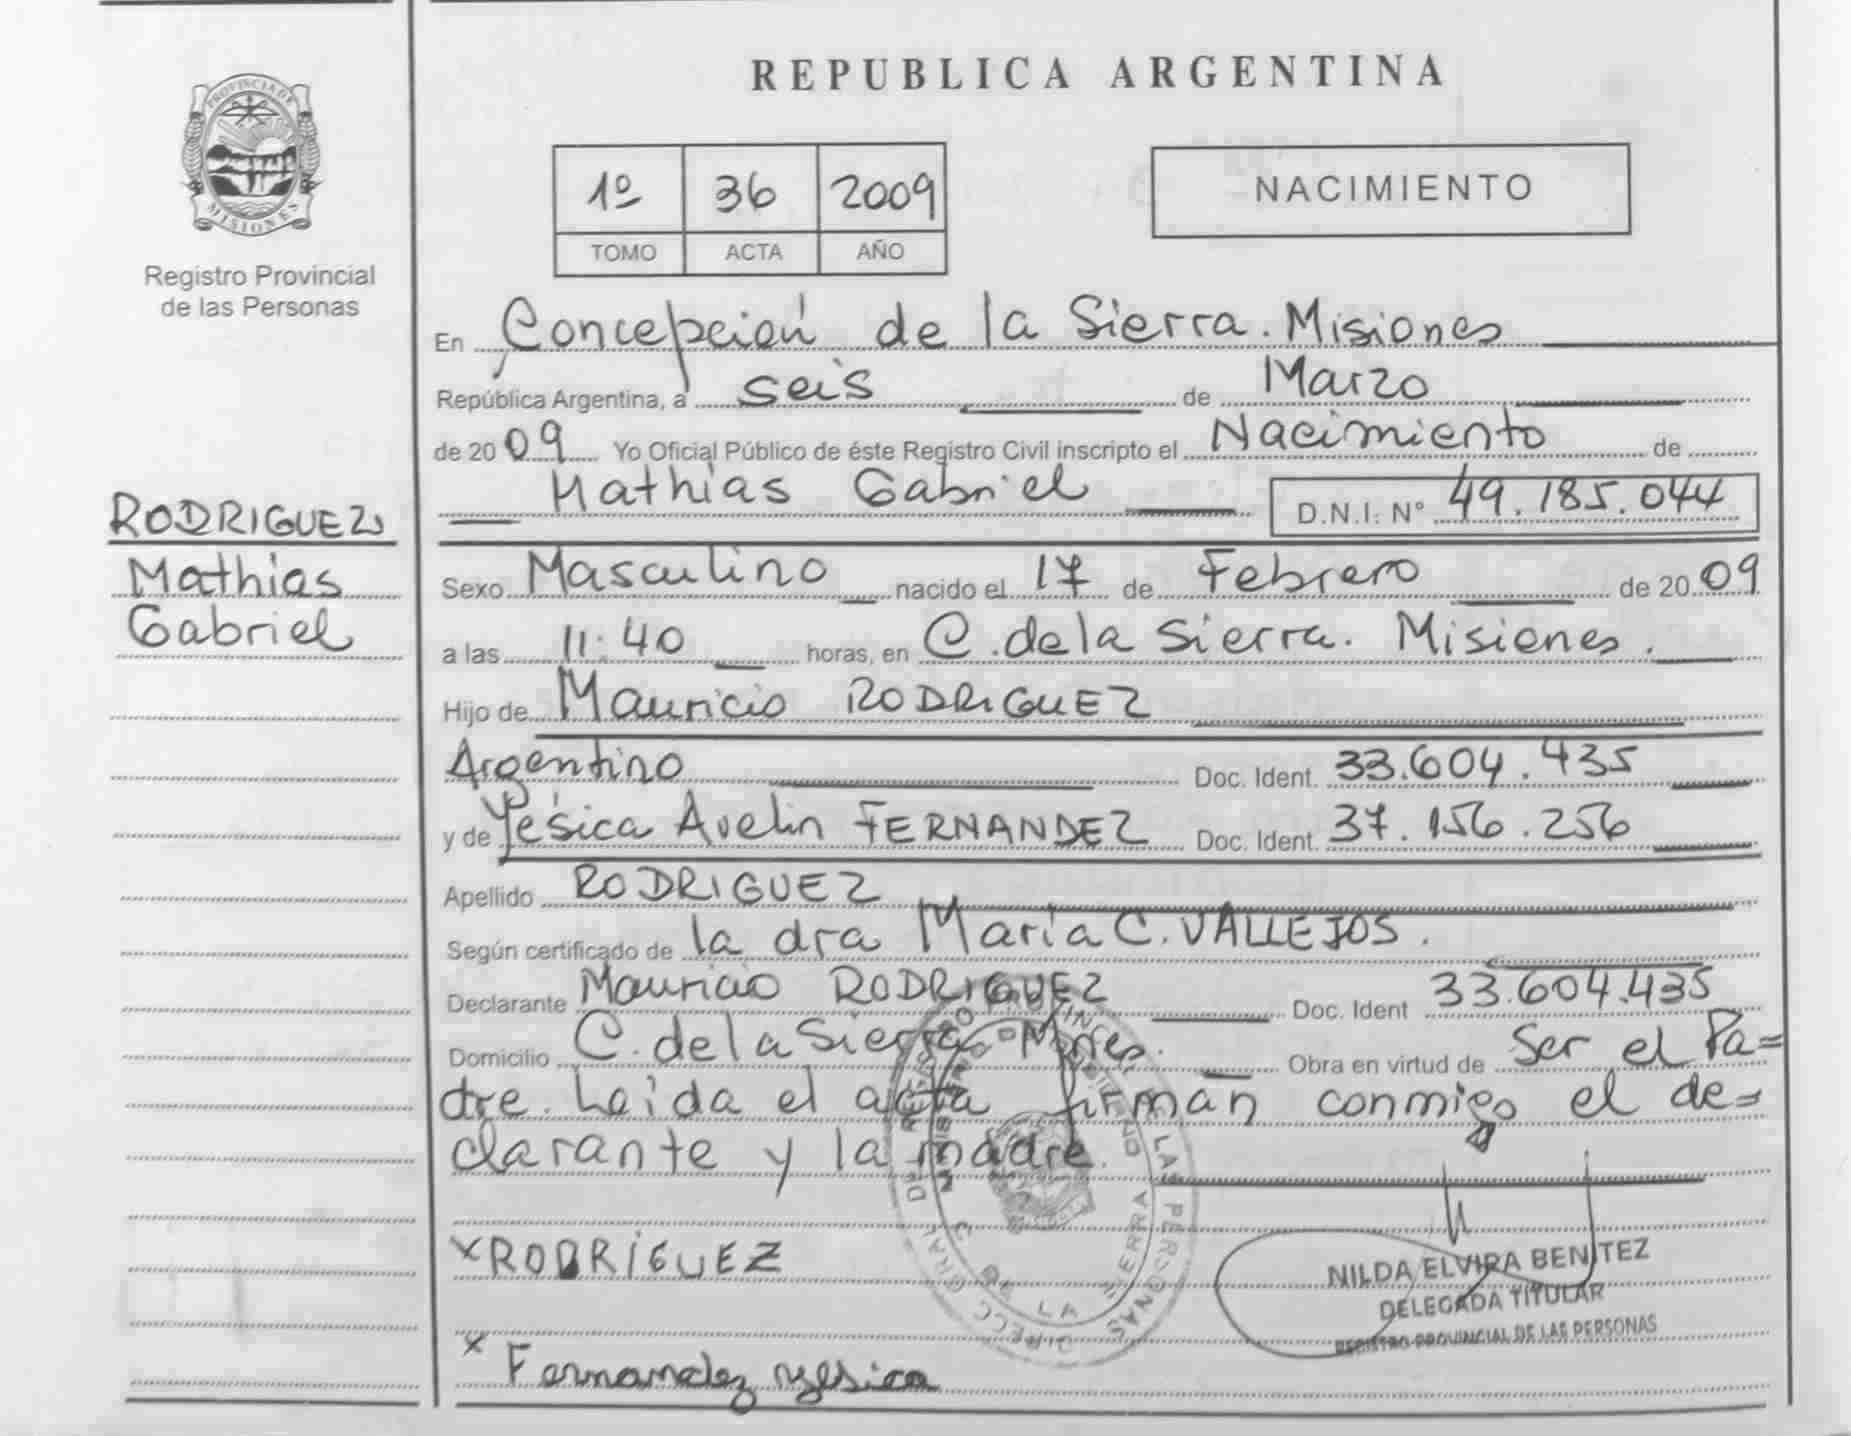 PROVINCIA DE
MISIONES
Registro Provincial
de las Personas
RODRIGUEZ
Mathias
Gabriel
REPUBLICA ARGENTINA
1º 36 2009
TOMO ACTA AÑO
NACIMIENTO
En Concepción de la Sierra. Misiones
República Argentina, a seis de Marzo
de 2009 Yo Oficial Público de éste Registro Civil inscripto el Nacimiento de
Mathias Gabriel D.N.I. N° 49.185.044
Sexo Masculino nacido el 17 de Febrero de 2009
a las 11:40 horas, en C. de la Sierra. Misiones.
Hijo de Mauricio RODRIGUEZ
Argentino Doc. Ident. 33.604.435
y de Yésica Avelin FERNANDEZ Doc. Ident. 37.156.256
Apellido RODRIGUEZ
Según certificado de la dra María C. VALLEJOS.
Declarante Mauricio RODRIGUEZ Doc. Ident 33.604.435
Domicilio C. de la Sierra Mnes. Obra en virtud de Ser el Pa=
dre. Leída el acta firman conmigo el de=
clarante y la madre.
x RODRÍGUEZ
x Fernandez yesica
NILDA ELVIRA BENITEZ
DELEGADA TITULAR
REGISTRO PROVINCIAL DE LAS PERSONAS